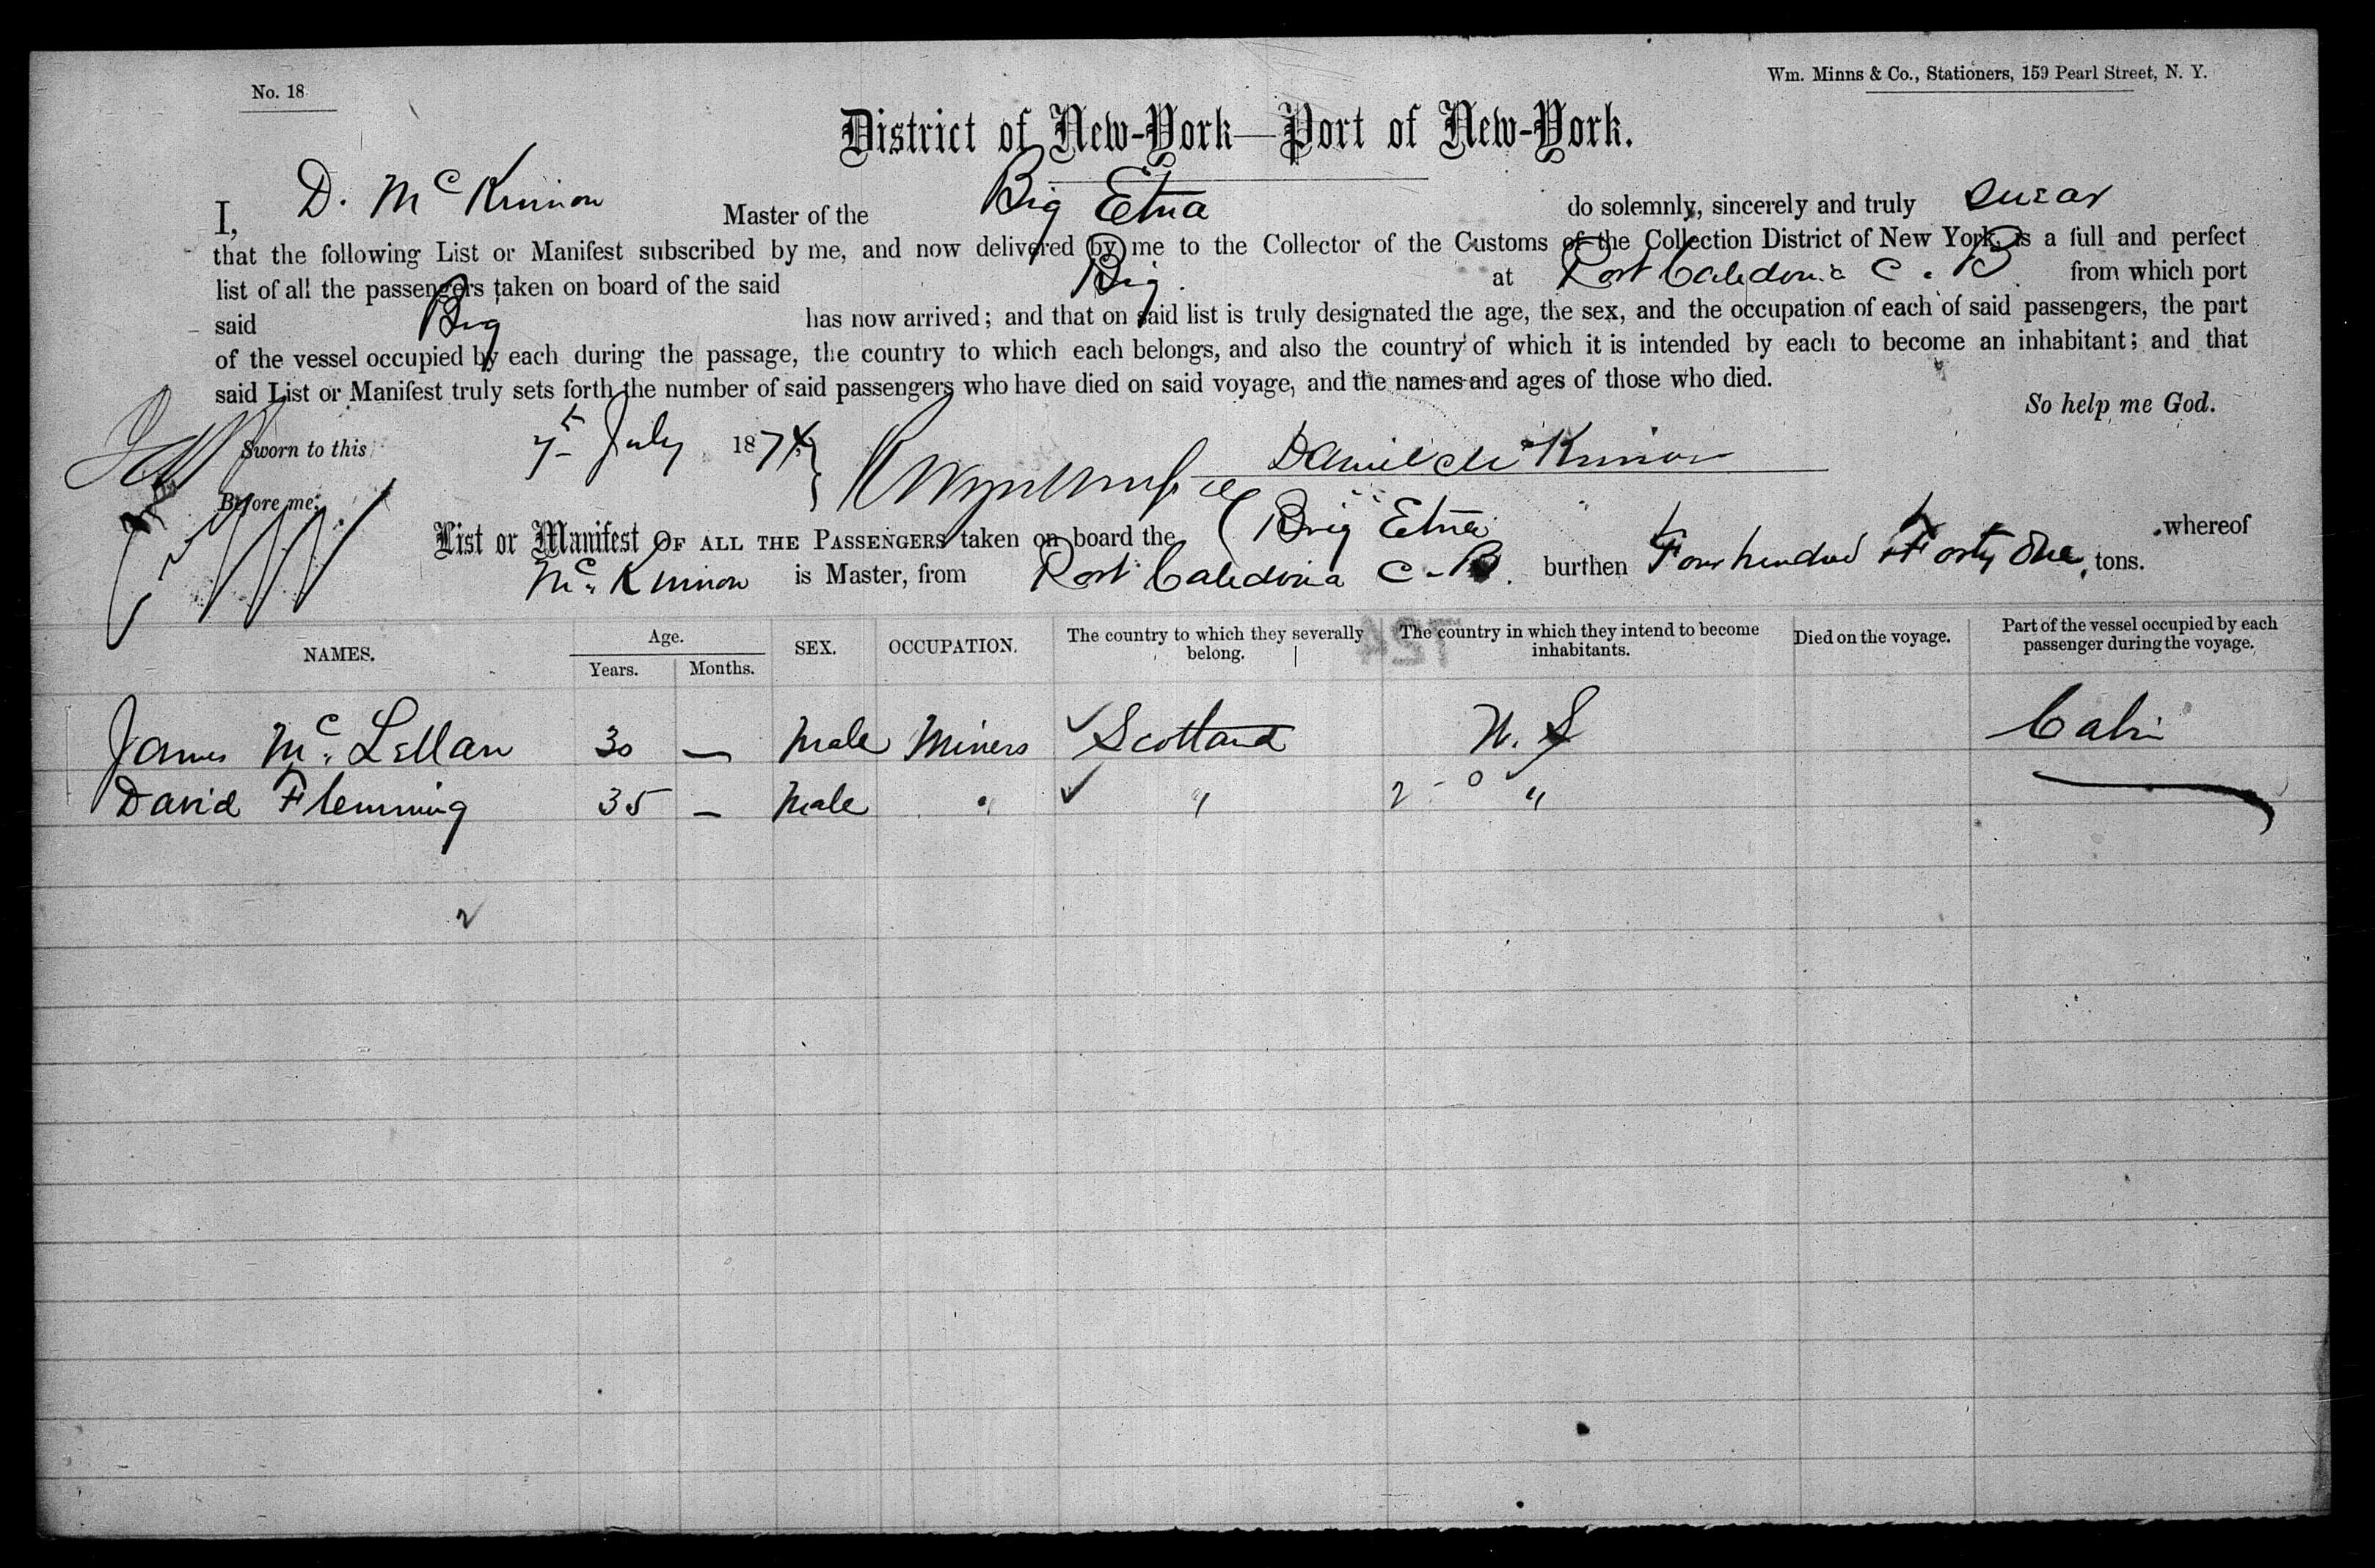 No. 18
Wm. Minns & Co., Stationers, 159 Pearl Street, N. Y.
District of New-York—Port of New-York.
I, D. Mc Kinnon Master of the Brig Etna do solemnly, sincerely and truly swear
that the following List or Manifest subscribed by me, and now delivered by me to the Collector of the Customs of the Collection District of New York, is a full and perfect
list of all the passengers taken on board of the said Brig at Port Caledonia C. B. from which port
said Brig has now arrived; and that on said list is truly designated the age, the sex, and the occupation of each of said passengers, the part
of the vessel occupied by each during the passage, the country to which each belongs, and also the country of which it is intended by each to become an inhabitant; and that
said List or Manifest truly sets forth the number of said passengers who have died on said voyage, and the names and ages of those who died.
So help me God.
Sworn to this 7th July 1874 Daniel Mc Kinnon
Before me,
List or Manifest OF ALL THE PASSENGERS taken on board the Brig Etna whereof
Mc. Kinnon is Master, from Port Caledonia C. B. burthen Four hundred & Forty One tons.
NAMES. Age. Years. Months. SEX. OCCUPATION. The country to which they severally belong. The country in which they intend to become inhabitants. Died on the voyage. Part of the vessel occupied by each passenger during the voyage.
James Mc. Lellan 30 — Male Miners Scotland U. S Cabin
David Flemming 35 — Male " " 2 - 0 "
2